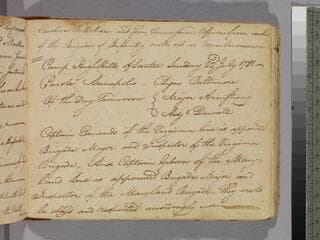 Carolina Artillery and four Commission'd Officers from each
of the Brigades of Infantry will sit as members
Camp High Hills of Santee Sunday 22d July 1781
Parole Annapolis C Sign Baltimore
Of the Day Tomorrow { Major Armstrong
Adjt Denwall
Captain Edmunds of the Virginia line is appointed
Brigade Major and Inspector of the Virginia
Brigade, And Captain Gibson of the Mary-
land line is appointed Brigade Major and
Inspector of the Maryland Brigade. They are to
be obeyd and respected accordingly